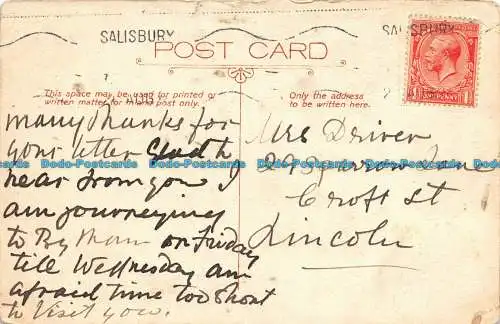 SALISBURY
SALISBURY
POST CARD
This space may be used for printed or
written matter for inland post only.
Only the address
to be written here.
many thanks for
your letter Glad to
hear from you I
am journeying
to By Mam on Friday
till Wednesday am
afraid time too short
to visit you.
Mrs Driver
29 Sparrow Lane
Croft St
Lincoln
Dodo-Postcards Dodo-Postcards Dodo-Postcards Dodo-Postcards